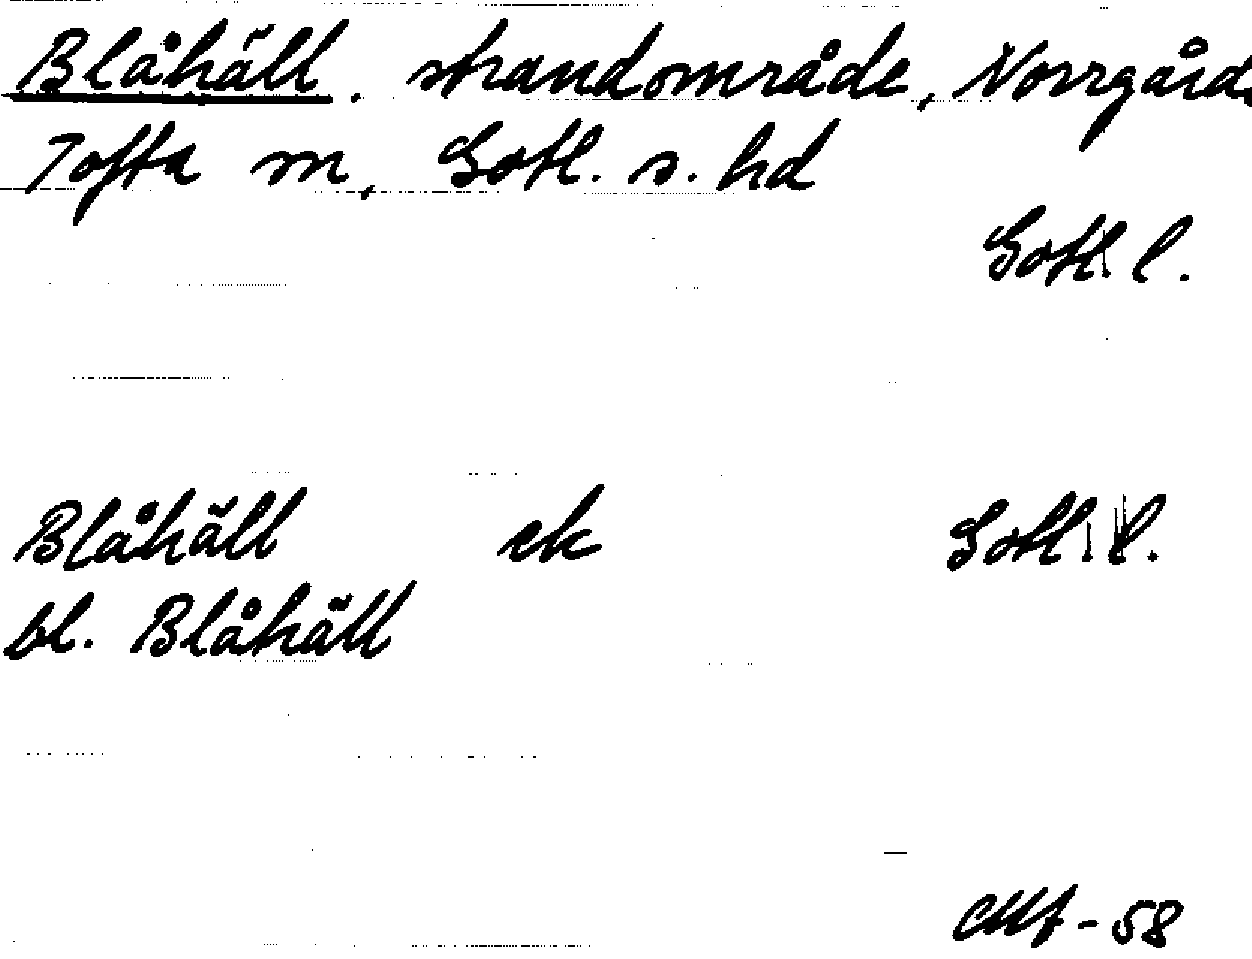 Blåhäll. strandområde, Norrgårda
Tofta m, Gotl. s. hd
Gotl. l.
Blåhäll ek Gotl. l.
bl. Blåhäll
-58